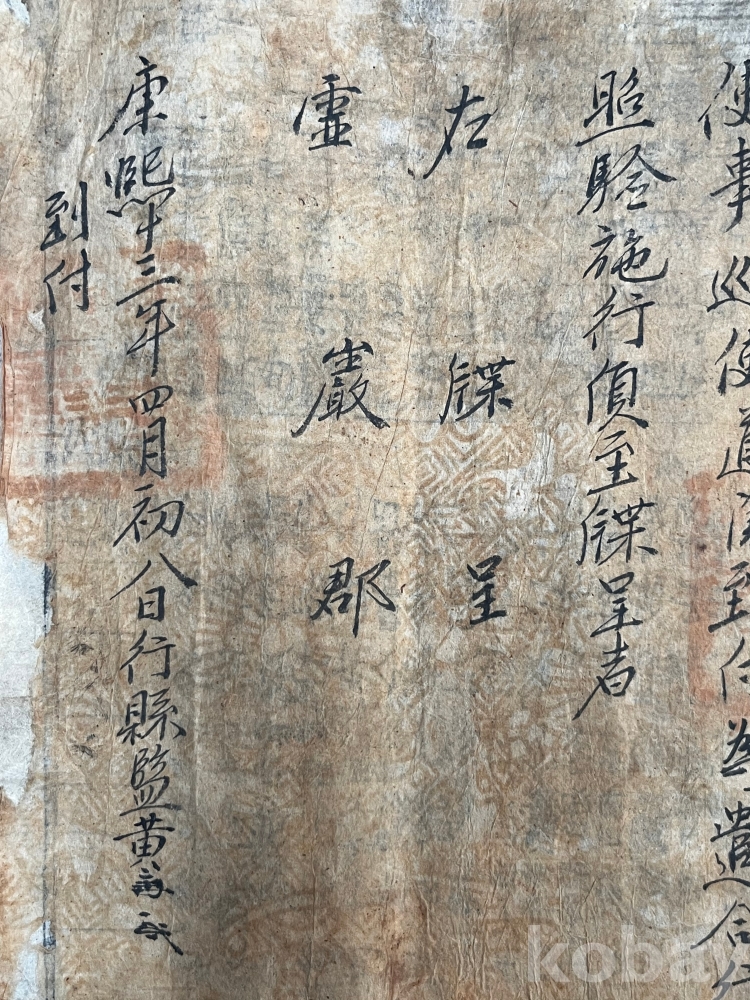 使事巡使道關到付為遣合行
照驗施行須至牒呈者
左牒呈
靈巖郡
康熙十三年四月初八日行縣監黃
到付
koba